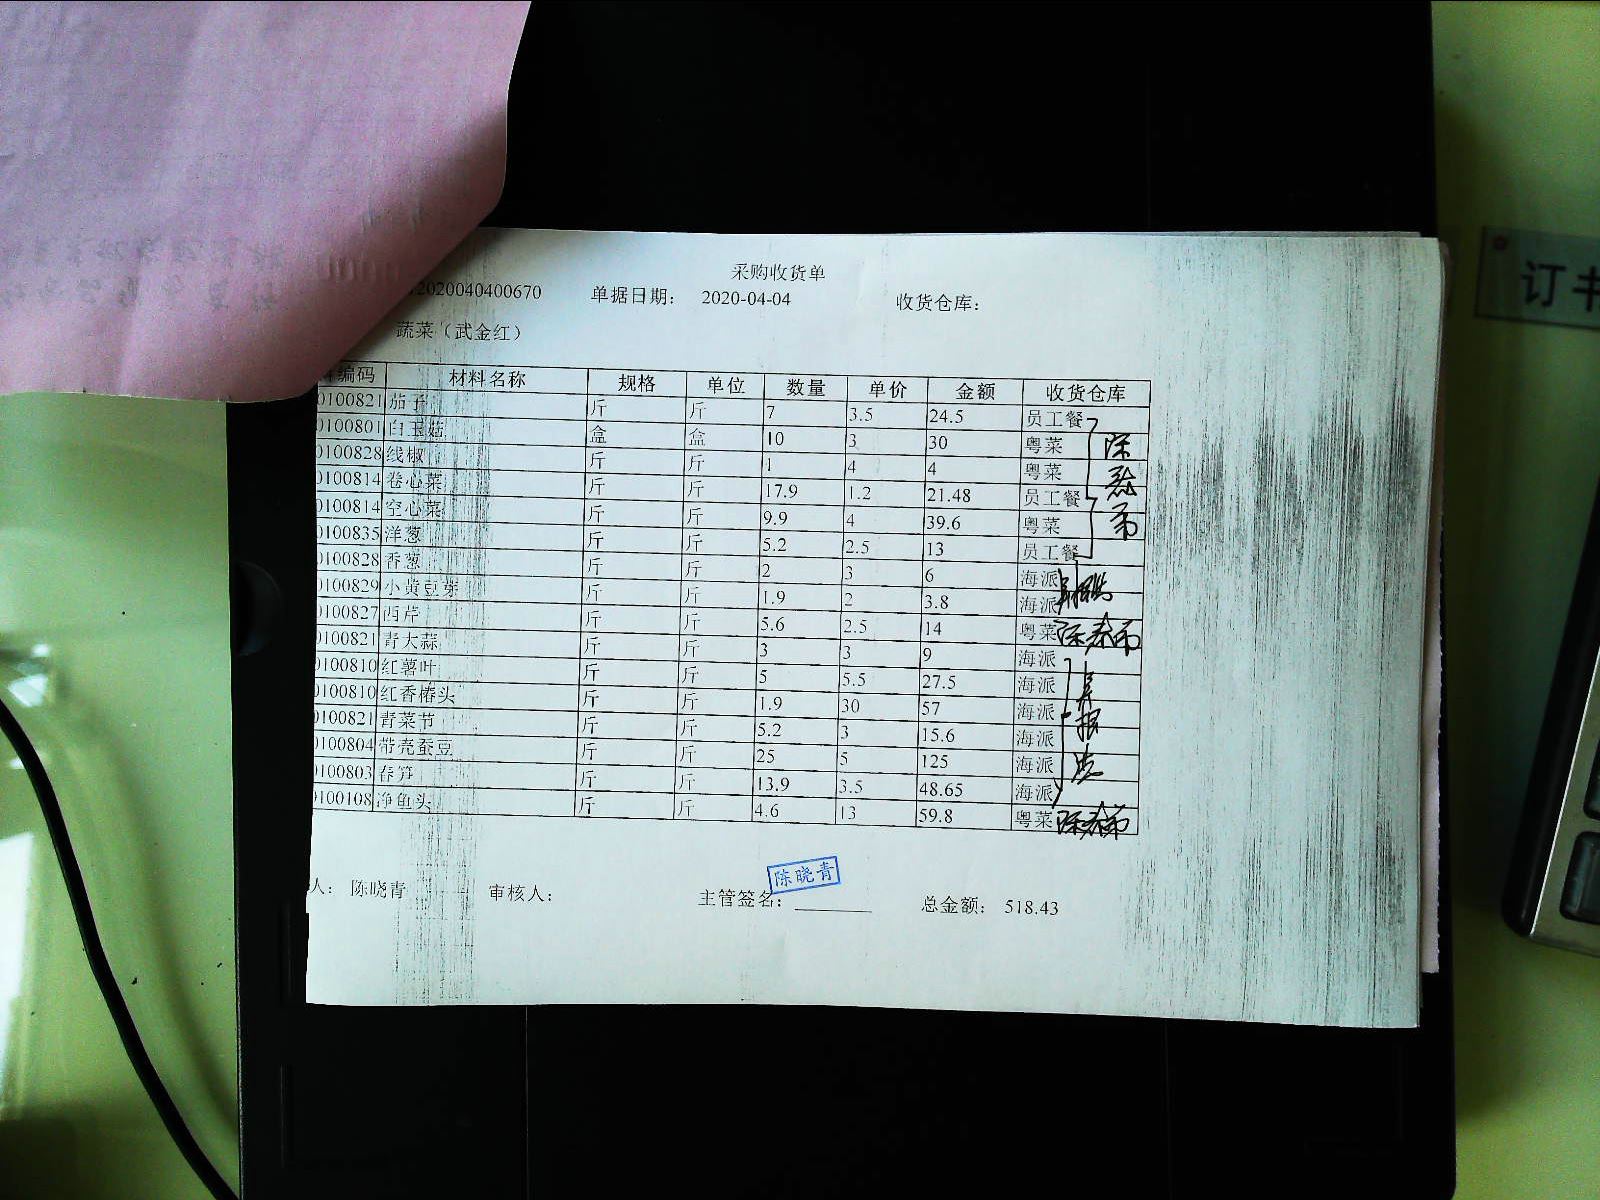 采购收货单
2020040400670 单据日期： 2020-04-04 收货仓库：
蔬菜（武金红）
编码 材料名称 规格 单位 数量 单价 金额 收货仓库
0100821 茄子 斤 斤 7 3.5 24.5 员工餐
0100801 白玉菇 盒 盒 10 3 30 粤菜
0100828 线椒 斤 斤 1 4 4 粤菜
0100814 卷心菜 斤 斤 17.9 1.2 21.48 员工餐
0100814 空心菜 斤 斤 9.9 4 39.6 粤菜
0100835 洋葱 斤 斤 5.2 2.5 13 员工餐
0100828 香葱 斤 斤 2 3 6 海派
0100829 小黄豆芽 斤 斤 1.9 2 3.8 海派
0100827 西芹 斤 斤 5.6 2.5 14 粤菜
0100821 青大蒜 斤 斤 3 3 9 海派
0100810 红薯叶 斤 斤 5 5.5 27.5 海派
0100810 红香椿头 斤 斤 1.9 30 57 海派
0100821 青菜节 斤 斤 5.2 3 15.6 海派
0100804 带壳蚕豆 斤 斤 25 5 125 海派
0100803 春笋 斤 斤 13.9 3.5 48.65 海派
0100108 净鱼头 斤 斤 4.6 13 59.8 粤菜
人： 陈晓青 审核人： 主管签名： 陈晓青 总金额： 518.43
订书